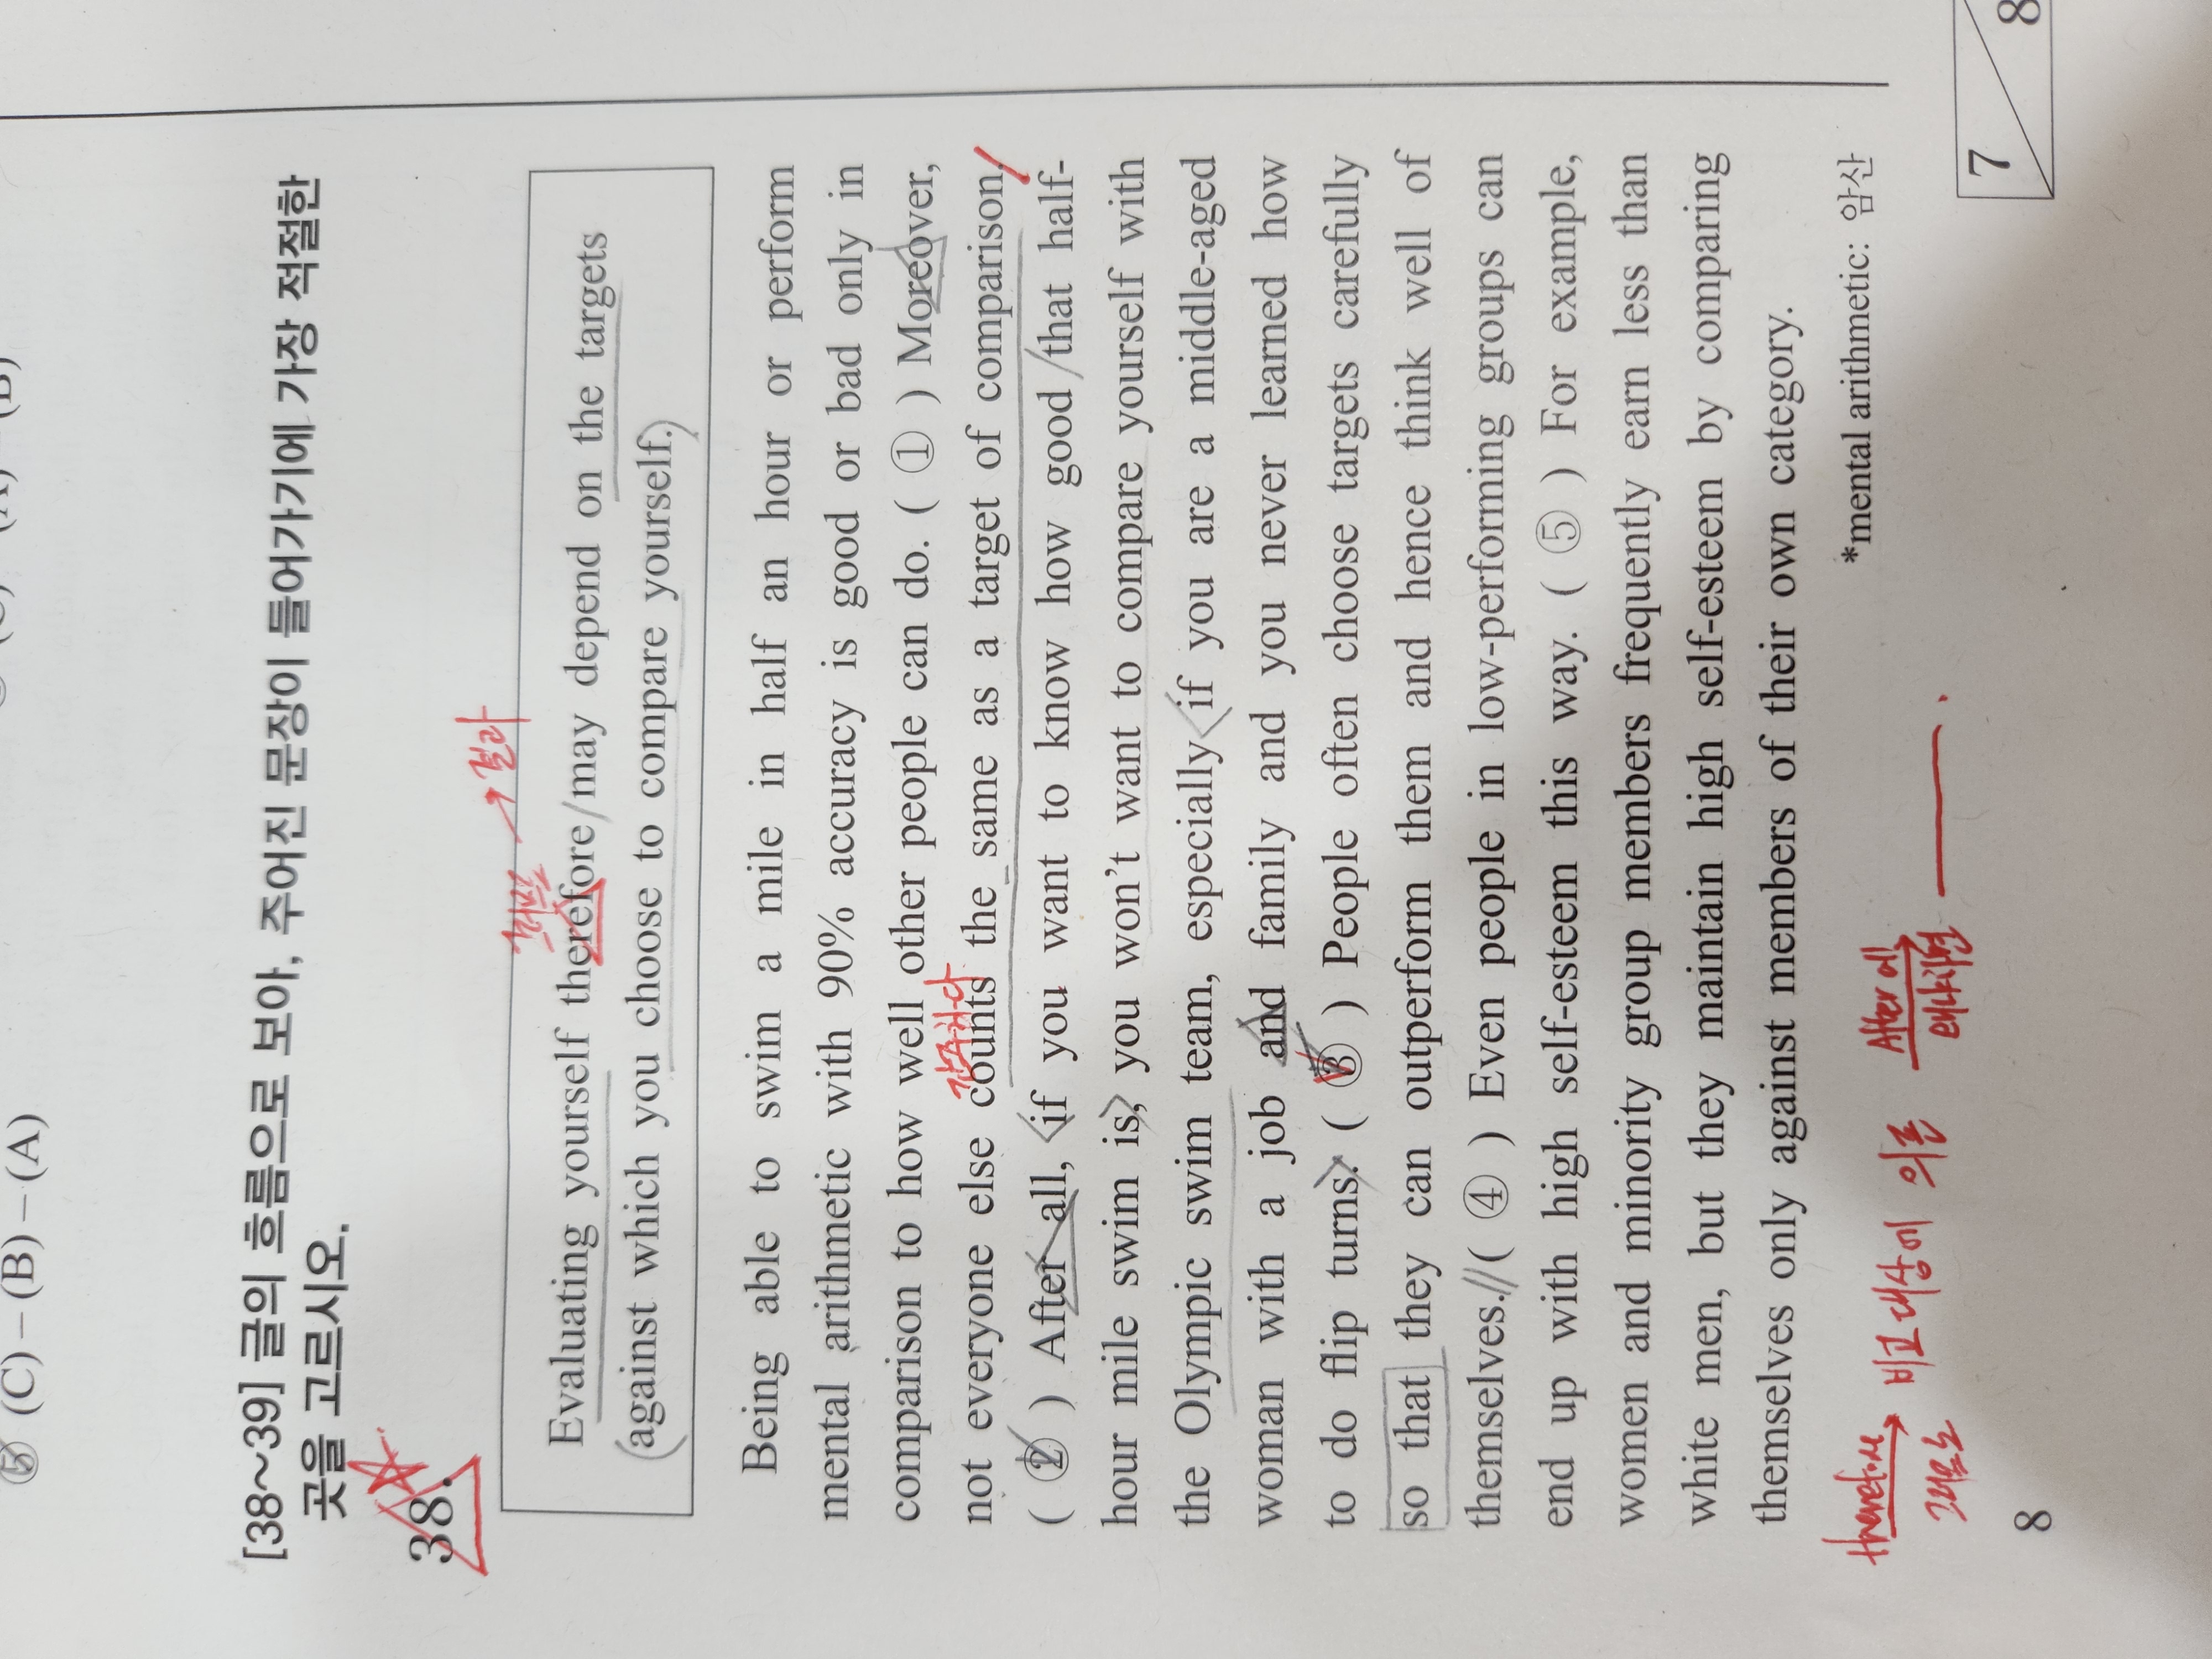 ⑤ (C) – (B) – (A)
[38~39] 글의 흐름으로 보아, 주어진 문장이 들어가기에 가장 적절한
곳을 고르시오.
38.
그래프 → 결과
Evaluating yourself therefore/may depend on the targets
(against which you choose to compare yourself.)
Being able to swim a mile in half an hour or perform
mental arithmetic with 90% accuracy is good or bad only in
comparison to how well other people can do. ( ① ) Moreover,
간주하다
not everyone else counts the same as a target of comparison.
( ② ) After all, if you want to know how good/that half-
hour mile swim is, you won't want to compare yourself with
the Olympic swim team, especially if you are a middle-aged
woman with a job and family and you never learned how
to do flip turns. ( ③ ) People often choose targets carefully
so that they can outperform them and hence think well of
themselves.// ( ④ ) Even people in low-performing groups can
end up with high self-esteem this way. ( ⑤ ) For example,
women and minority group members frequently earn less than
white men, but they maintain high self-esteem by comparing
themselves only against members of their own category.
*mental arithmetic: 암산
therefore → 비교대상에 의존 After all
그래프
8
7
8